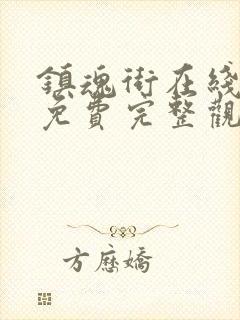 鎮魂街在綫
免費完整觀
方應嬌